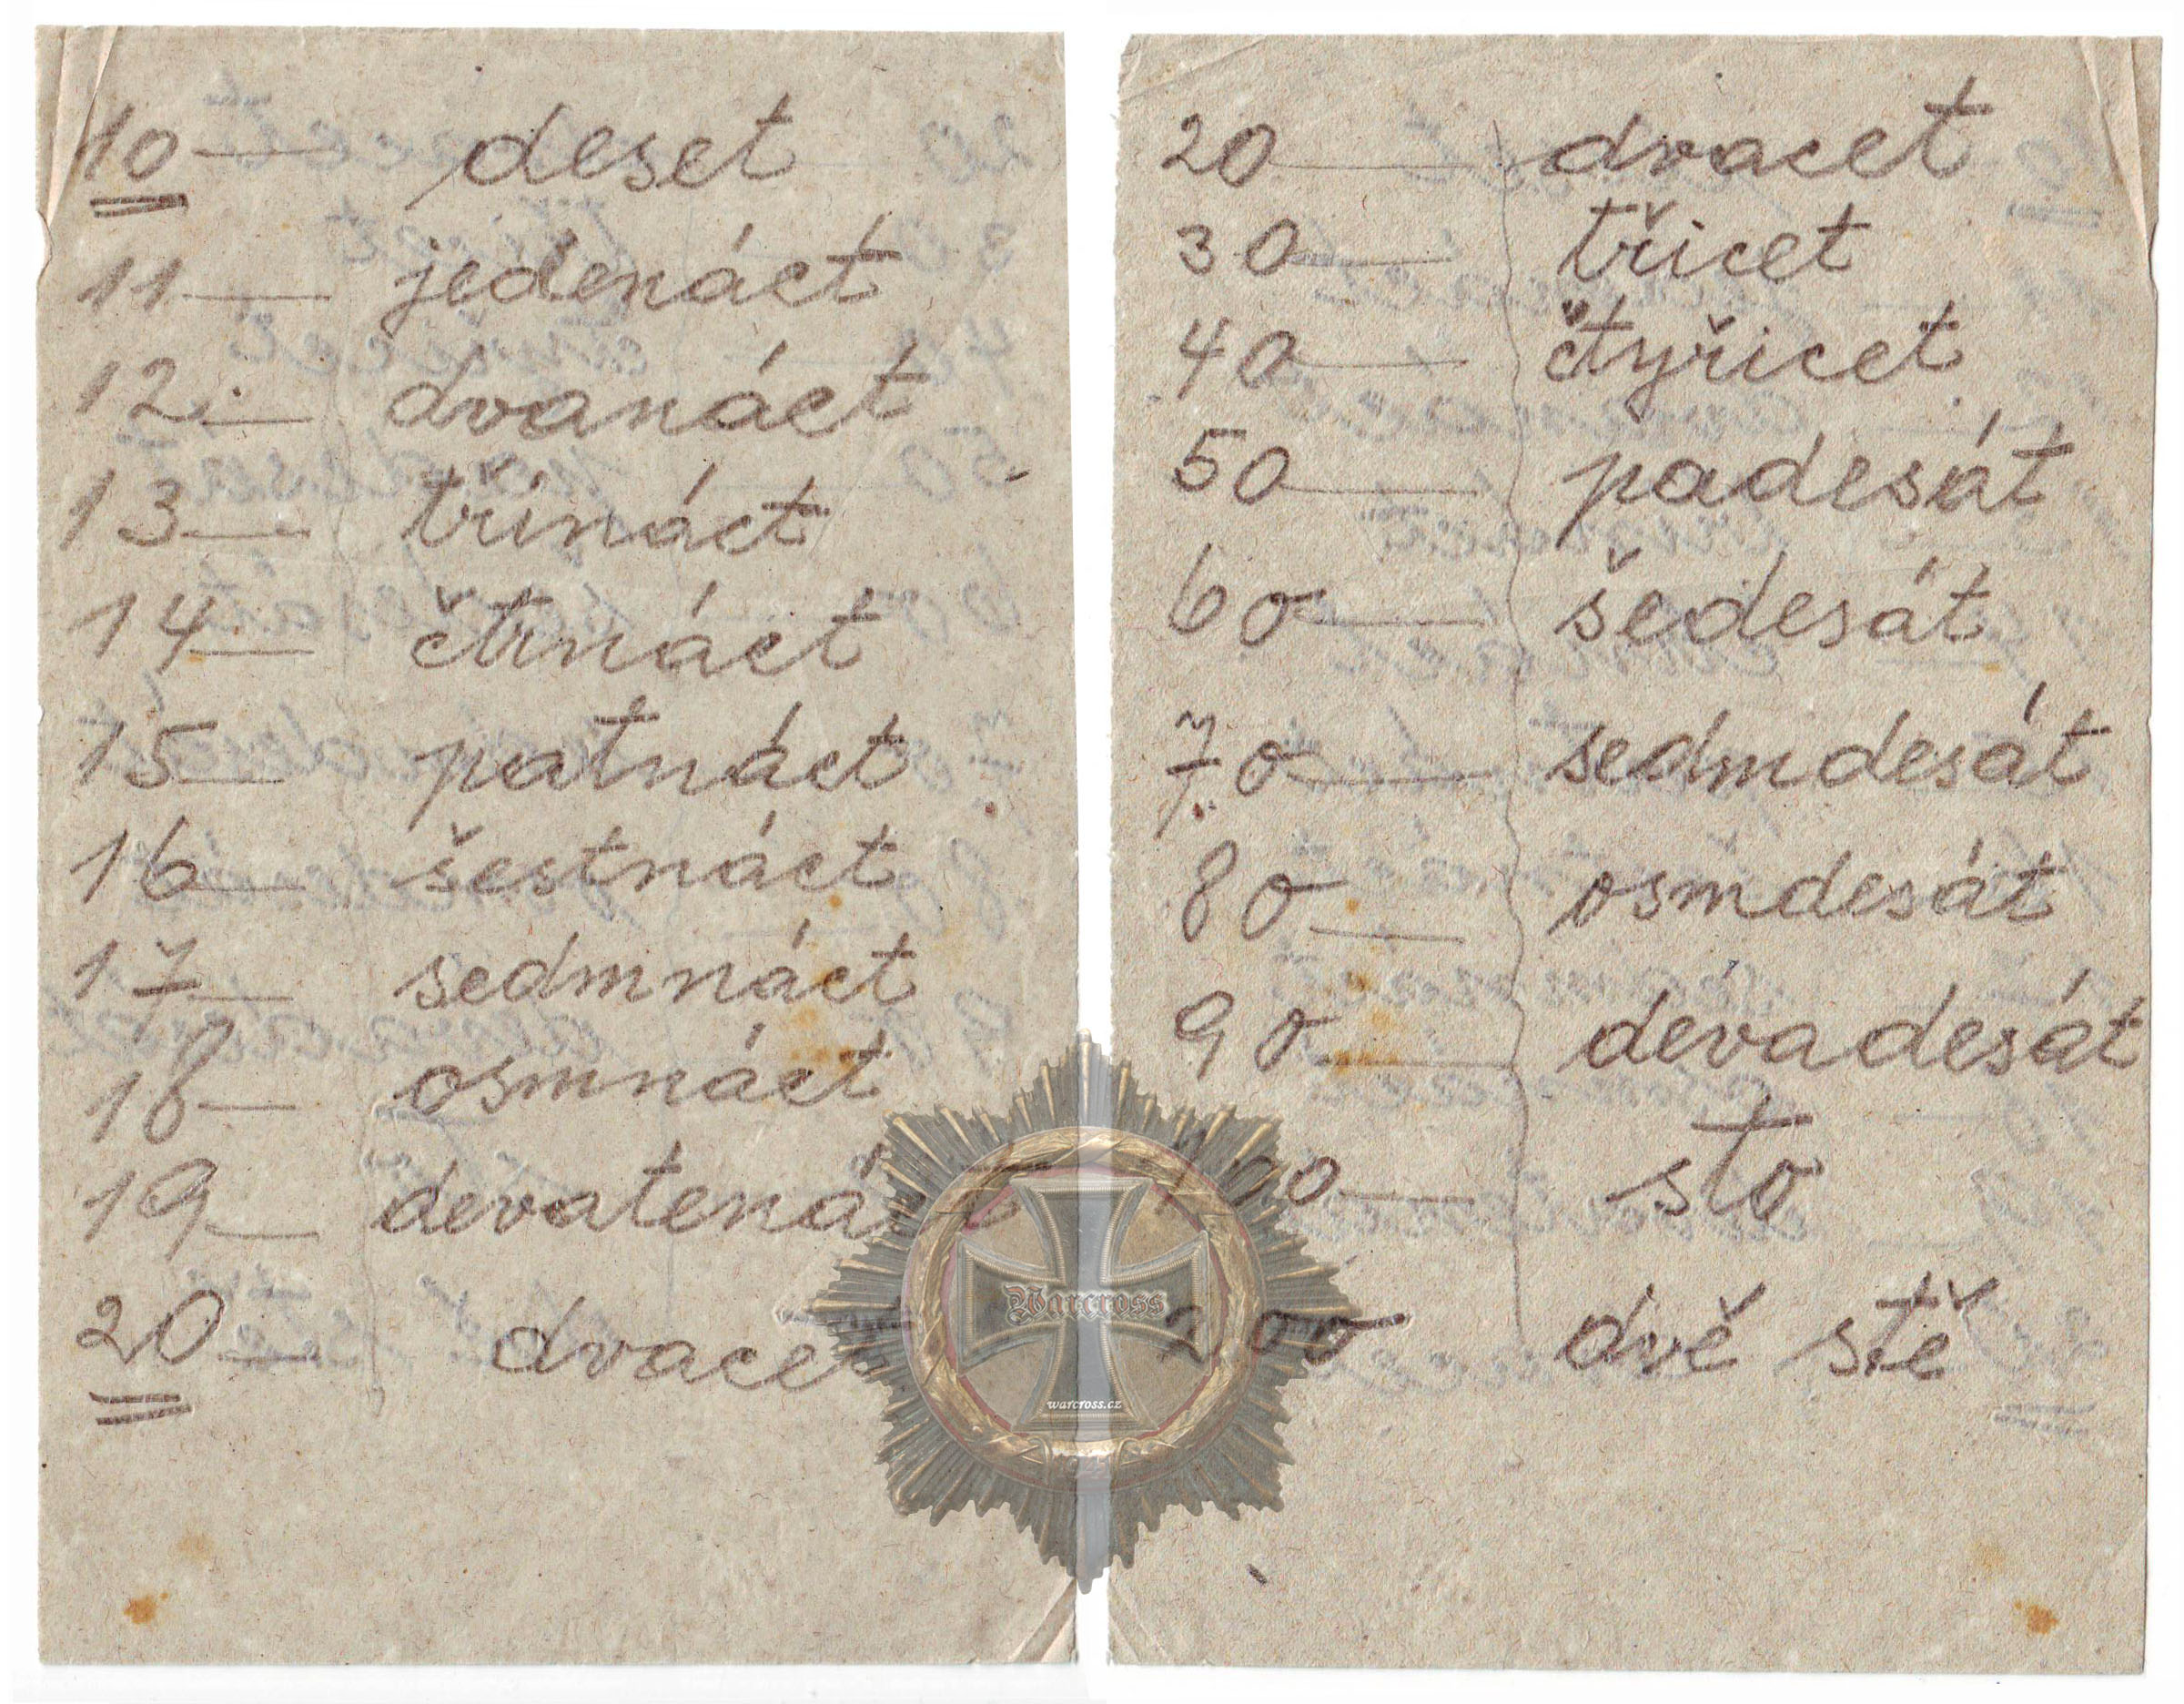 10 — deset
11 — jedenáct
12 — dvanáct
13 — třináct
14 — čtrnáct
15 — patnáct
16 — šestnáct
17 — sedmnáct
18 — osmnáct
19 — devatenáct
20 — dvacet
20 — dvacet
30 — třicet
40 — čtyřicet
50 — padesát
60 — šedesát
70 — sedmdesát
80 — osmdesát
90 — dévadesát
100 — sto
200 dvě stě
Warcross
warcross.cz